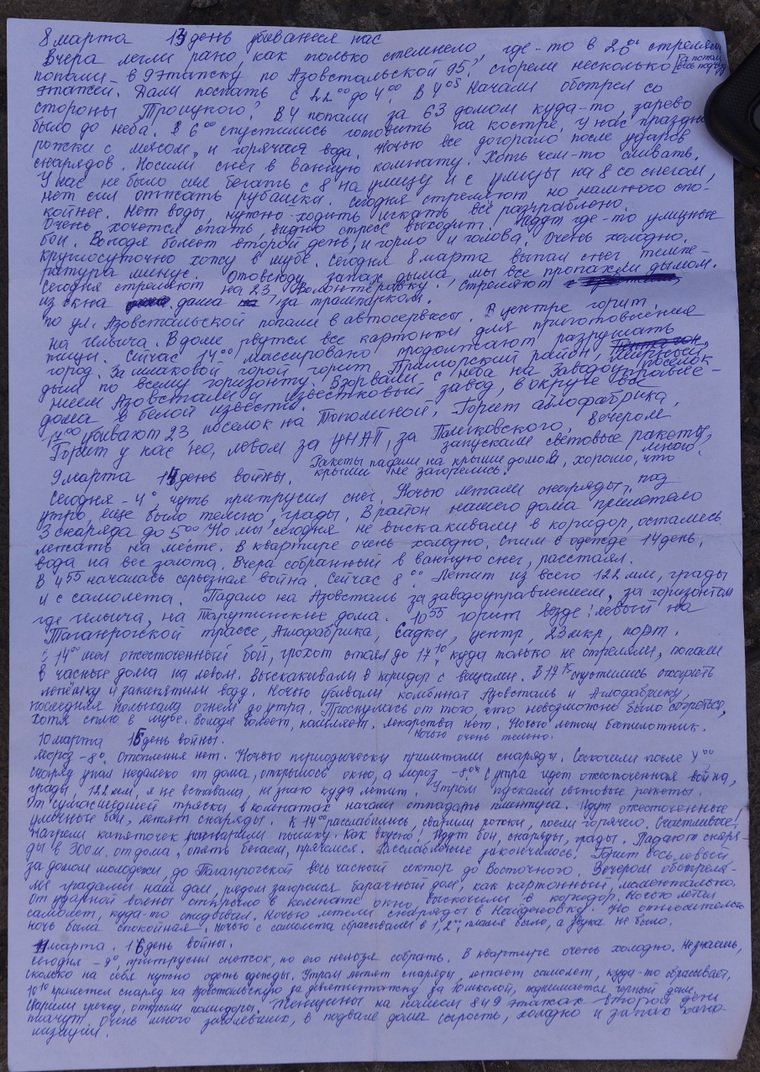 8 марта 13 день убивания нас
Вчера легли рано, как только стемнело где-то в 20⁰⁰ стреляли
попали в 9этажку по Азовстальской 95? сгорели несколько
этажей. Дали поспать с 22⁰⁰ до 4⁰⁰. В 4⁰⁵ начали обстрел со
стороны "Троицкого". В 4 попали за 63 домом куда-то, зарево
было до неба. В 6⁰⁰ спустились готовить на костре. У нас праздник
рожки с мясом, и горячая вода. Ночью все догорало после ударов
снарядов. Носили снег в ванную комнату. Хоть чем-то смывать.
У нас не было сил бегать с 8 на улицу и с улицы на 8 со снегом,
нет сил отжать рубашки. Сегодня стреляют но намного спо-
койнее. Нет воды, нужно ходить искать все разграблено.
Очень хочется спать, видно стресс выходит. Идут где-то уличные
бои. Володя болеет второй день, и горло и голова. Очень холодно.
Круглосуточно хожу в шубе. Сегодня 8 марта выпал снег темпе-
ратура минус. Отовсюду запах дыма, мы все пропахли дымом.
Сегодня стреляют на 23, Волонтеровку. Стреляют
из окна дома за трампарком.
по ул. Азовстальской попали в автосервисы. В центре горит.
на Ильича. В доме рвутся все картонки для приготовления
пищи. Сейчас 14⁰⁰ массировано продолжают разрушать
город. За шлаковой горой горит Приморский район,
дым по всему горизонту. Взорвали с неба на заводоуправле-
нием Азовстали и известковый завод, в округе все
дома в белой извести. Горит аглофабрика,
17⁰⁰ убивают 23, поселок на Тополиной.
Горит у нас на левом за ЦНАП, за Поликовского, вечером
запускали световые ракеты, много.
Ракеты падали на крыши домов, хорошо, что
крыши не загорелись.
9 марта 14 день войны.
Сегодня -4°, чуть притрусил снег. Ночью летали снаряды, под
утро, еще было темно, грады. В район нашего дома прилетало
3 снаряда до 5⁰⁰ Но мы сегодня не выскакивали в коридор, остались
лежать на месте. В квартире очень холодно. Спим в одежде 14 день,
вода на вес золота. Вчера собранный в ванную снег, растаял.
В 4⁵⁵ началась серьозная война. Сейчас 8⁰⁰ Летит из всего 122 мм, грады
и с самолета. Падало на Азовсталь за заводоуправлением, за горизонтом
где Ильича, на Тарутинские дома. 10⁵⁵ горит везде! левый на
Таганрогской трассе, Аглофабрика, Садки, центр, 23 мкр, порт.
С 14⁰⁰ шел ожесточенный бой, грохот стоял до 17¹⁰, куда только не стреляли, попали
в частные дома на левом. Выскакивали в коридор с вещами. В 17¹⁵ спустились пожарить
лепешку и закипятили воду. Ночью убивали комбинат Азовсталь и Аглофабрику,
последняя полыхала огнем до утра. Проснулась от того, что невозможно было согреться,
хотя сплю в шубе. Володя болеет, кашляет. Лекарства нет. Ночью летал беспилотник.
Ночью очень темно.
10 марта 15 день войны.
Мороз -8°, отопления нет. Ночью периодически прилетали снаряды. Соскочили после 4⁰⁰
снаряд упал недалеко от дома, открылось окно, а мороз -8,0° С утра идет ожесточенная война,
грады, 122 мм, я не вставала, не знаю куда летит. Утром пускали световые ракеты.
От сумасшедшей тряски, в комнатах начали отпадать плинтуса. Идут ожесточенные
уличные бои, летят снаряды. К 14⁰⁰ расслабились, сварили рожки, поели горячего. Счастливые!
Нагрели кипяточек заварили пышку. Как вкусно! Идут бои, снаряды, грады. Падают снаря-
ды в 300м. от дома, опять бегаем, прячемся. Расслабление закончилось. Горит весь левый
за домом молодежи, до Таганрогской весь часный сектор до Восточного. Вечером обстреля-
ли градами наш дом, рядом загорелся барачный дом, как картонный, моментально.
От ударной волны открыло в комнате окно, выскочили в коридор. Ночью летал
самолет, куда-то отбывал. Ночью летели снаряды в Найденовку. Но относительно
ночь была спокойная. Ночью с самолета сбрасывали в 1, 2⁰⁰, пламя было, а звука не было.
11 марта. 16 день войны.
Сегодня -9°, притрусил снежок, но его нельзя собрать. В квартире очень холодно. Не знаешь,
сколько на себя нужно одеть одежды. Утром летят снаряды, летает самолет, куда-то сбрасывает,
10¹⁰ прилетел снаряд на Азовстальскую за девятиэтажку за комнатой, поднимается черный дым.
Сварили гречку, открыли помидоры. Женщины на нашем 8 и 9 этажах второй день
плачут. Очень много заболевших, в подвале дома сырость, холодно и запах кана-
лизации.